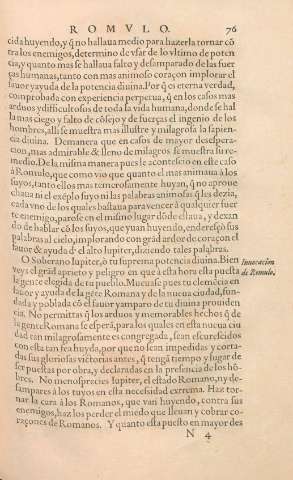 ROMVLO. 76
cida huyendo, y q̃ no hallaua medio para hazerla tornar cõ
tra los enemigos, determino de vsar de lo vltimo de poten
cia, y quanto mas se hallaua falto y desamparado de las fuer
ças humanas, tanto con mas animoso coraçon implorar el
fauor y ayuda de la potencia diuina. Por q̃ os eterna verdad,
comprobada con experiencia perpetua, q̃ en los casos mas
arduos y difficultosos de toda la vida humana, donde se hal
la mas ciego y falto de cõsejo y de fuerças el ingenio de los
hombres, alli se muestra mas illustre y milagrosa la sapien-
cia diuina. Demanera que en casos de mayor desespera-
cion, mas admirable & lleno de milagros se muestra su re-
medio. De la misma manera pues le acontescio en este caso
à Romulo, que como vio que quanto el mas animaua à los
suyos, tanto ellos mas temerosamente huyan, q̃ no aproue
chaua ni el exẽplo suyo ni las palabras animosas q̃ les dezia,
cada vno de los quales bastaua para vencer à qualquier fuer
te enemigo, parose en el mismo lugar dõde estaua, y dexan
do de hablar cõ los suyos, que yuan huyendo, endereçó sus
palabras al cielo, implorando con grãd ardor de coraçon el
fauor & ayuda d'el alto Iupiter, diziendo tales palabras.
O Soberano Iupiter, ò tu suprema potencia diuina. Bien
veys el grãd aprieto y peligro en que à esta hora esta puesta
la gente elegida de tu pueblo. Mueuase pues tu clemẽcia en
fauor y ayuda de la gẽte Romana y de la nueua ciudad, fun-
dada y poblada cõ el fauor y amparo de tu diuina prouiden
cia. No permittas q̃ los arduos y memorables hechos q̃ de
la gente Romana se esperã, para los quales en esta nueua ciu
dad tan milagrosamente es congregada, sean escurescidos
con esta tan fea huyda, por que no sean impedidas y corta-
das sus gloriosas victorias antes, q̃ tengã tiempo y lugar de
ser puestas por obra, y declaradas en la presencia de los hõ-
bres. No menosprecies Iupiter, el estado Romano, ny de-
sampares à los tuyos en esta necessidad extrema. Haz tor-
nar la cara à los Romanos, que van huyendo, contra sus
enemigos, haz los perder el miedo que lleuan y cobrar co-
raçones de Romanos. Y quanto esta puesto en mayor des
Inuocacion
de Romulo.
N 4